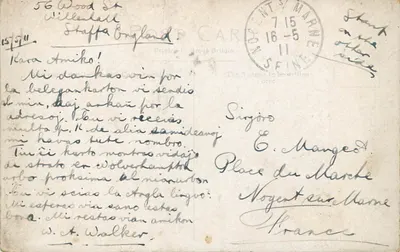 56 Wood St
Willenhall
Staffs England
15/5/11
Kara Amiko!
Mi dankas vin por
la belegan karton vi sendis
al min, kaj ankaŭ por la
adresoj. Ĉu vi recevas
multa p. K. de alis samideanoj
mi havas tute nombro.
Tiu ĉi karto montras vidajo
de strato en Wolverhampton
urbo proksima al mia urbon
Ĉu vi scias la Angla lingvo?
Mi esperas via sano estas
bona. Mi restas vian amikon
W. A. Walker.
POST CARD
NOGENT S MARNE
7 15
16-5
11
SEINE
Stamp
on the
other
side
Sinjoro
E. Mangeot
Place du Marche
Nogent sur Marne
France